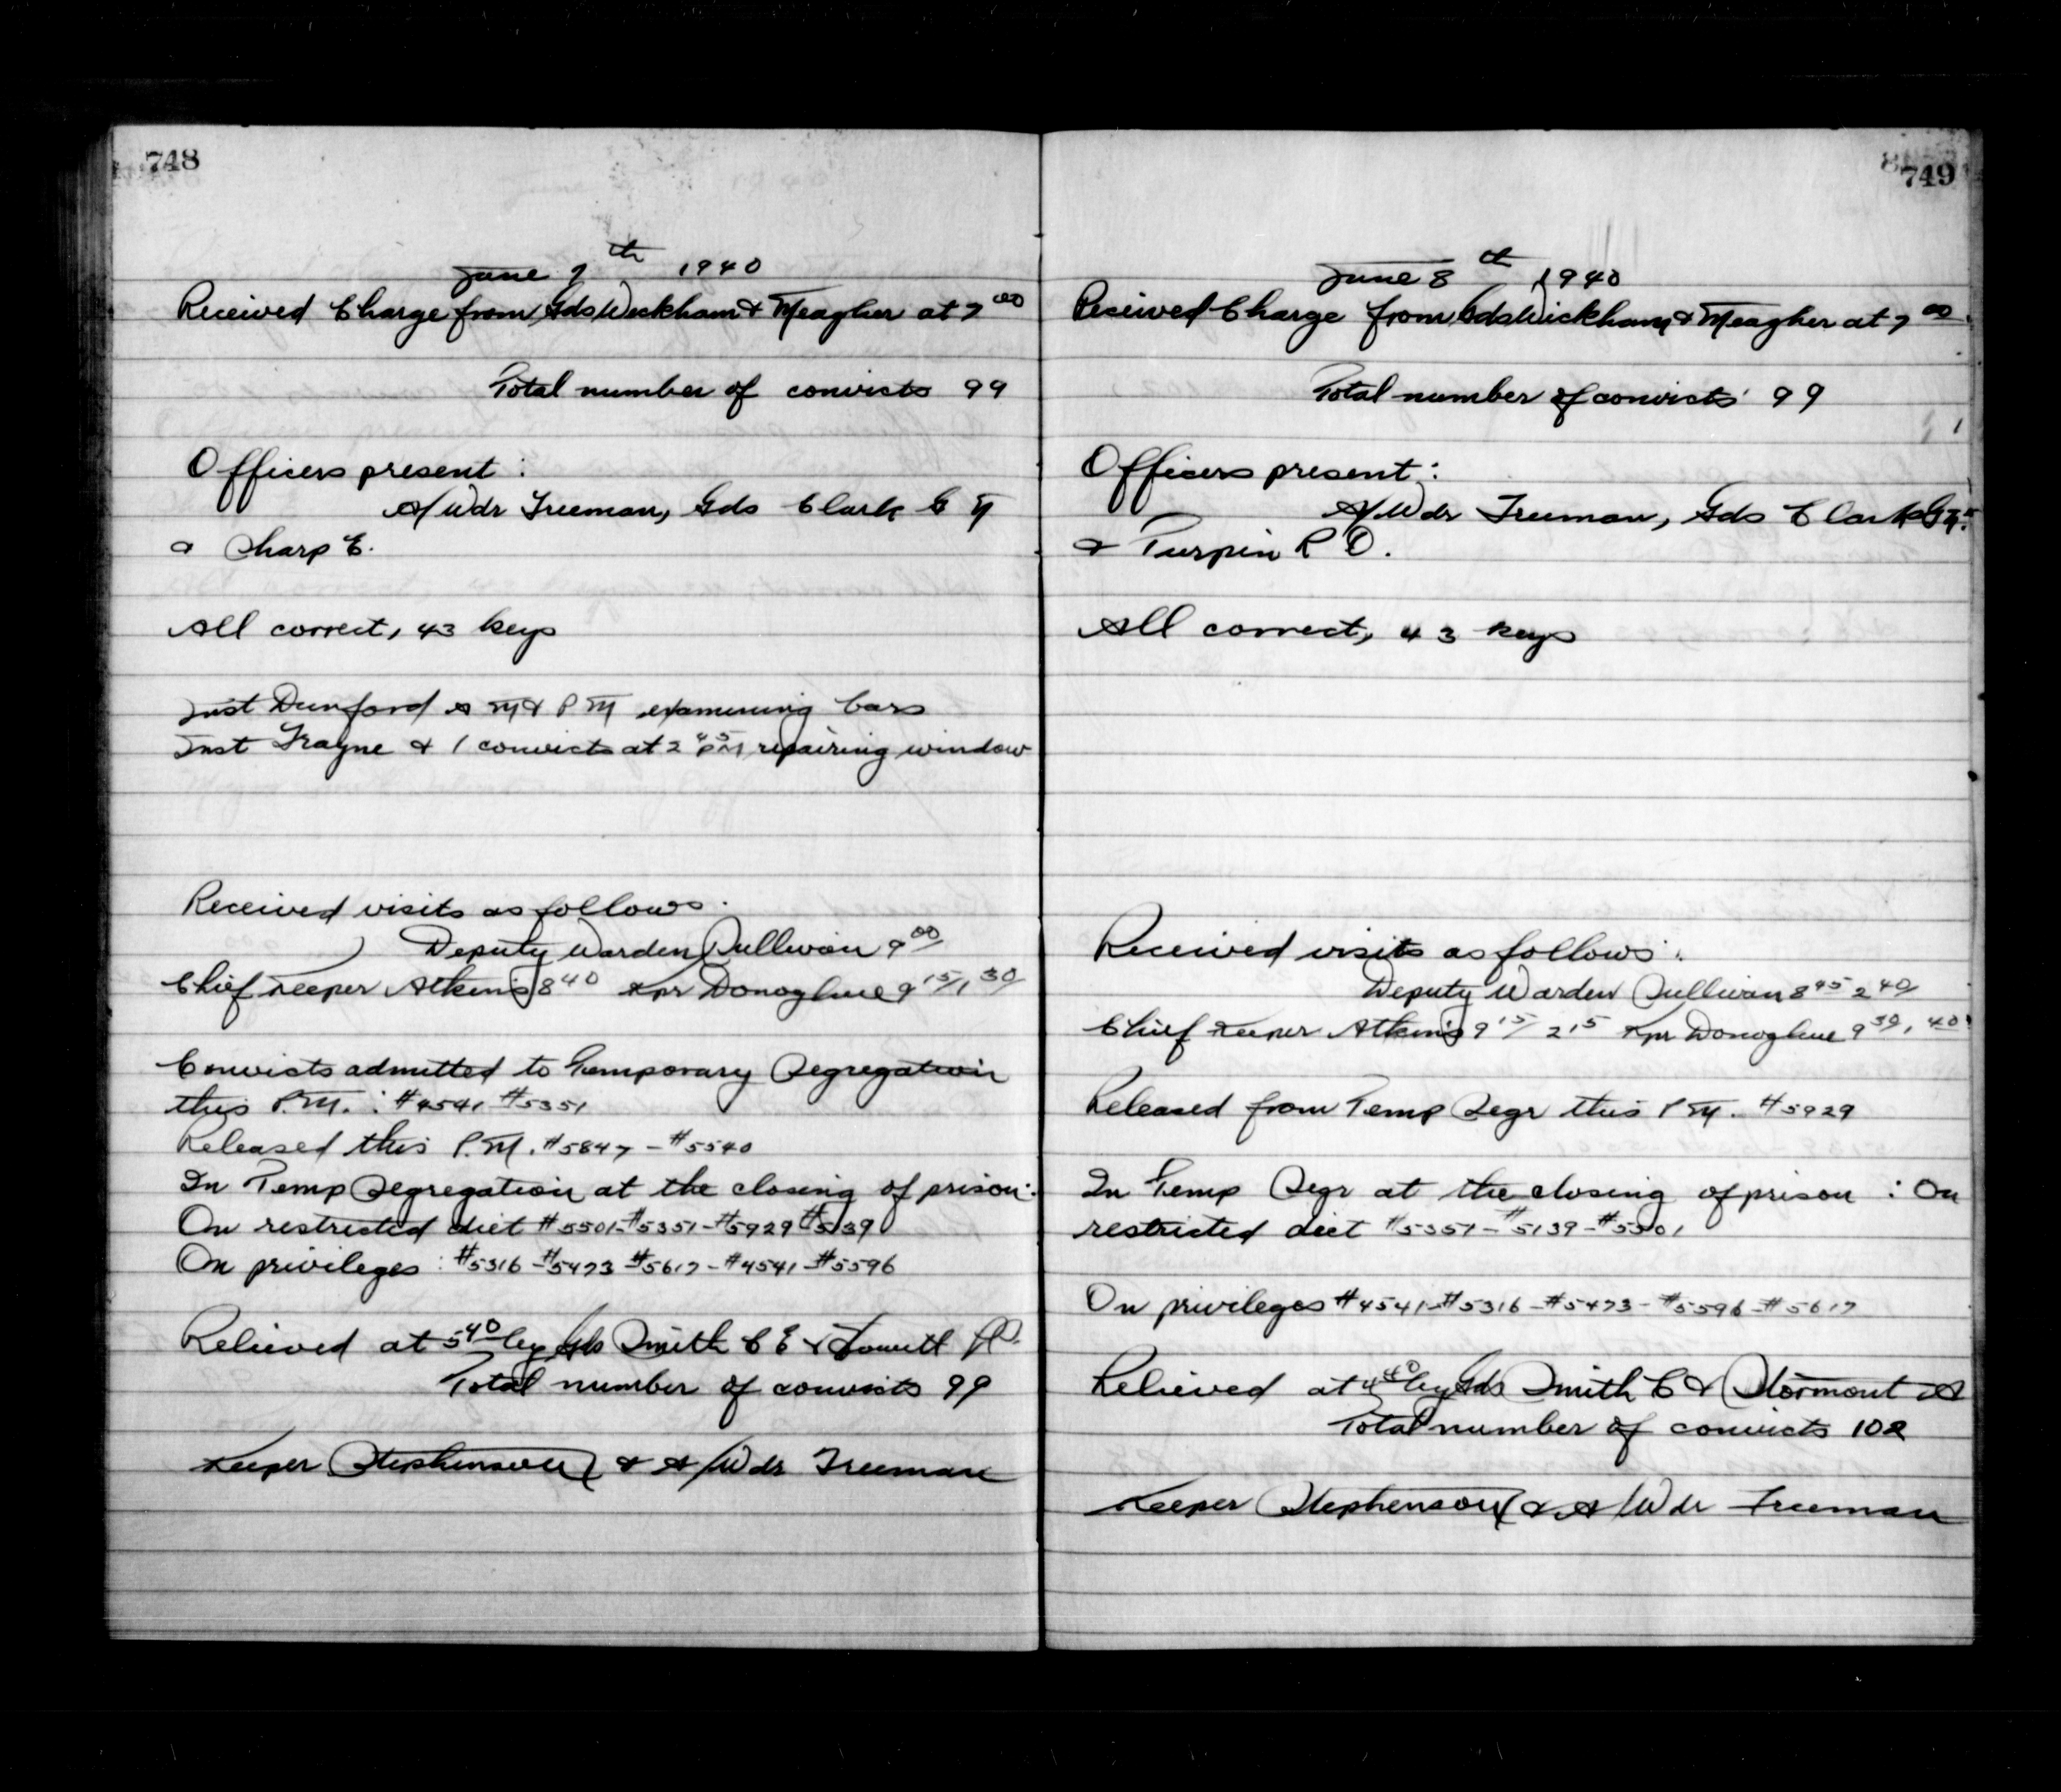 748
June 7th 1940
Received Charge from Gds Wickham & Meagher at 7 00
Total number of convicts 99
Officers present :
A/Wdr Freeman, Gds Clark G
& Sharp E.
All correct, 43 keys
Inst Dunford A M & P M examining bars
Inst Frayne & 1 convicts at 2 45 PM repairing window
Received visits as follows.
Deputy Warden Sullivan 9 00
Chief Keeper Atkins 8 40 Kpr Donoghue 9 15/1 30
Convicts admitted to Temporary Segregation
this P.M. : #4541 #5351
Released this P.M. #5847 - #5540
In Temp Segregation at the closing of prison :
On restricted diet #5501-#5351-#5929 #5139
On privileges : #5316 - #5473 #5617 - #4541 - #5596
Relieved at 5 40 by Gds Smith C E &
Total number of convicts 99
Keeper Stephenson & A/Wdr Freeman
749
June 8th 1940
Received Charge from Gds Wickham & Meagher at 7 00
Total number of convicts 99
Officers present :
A/Wdr Freeman, Gds Clark
& Turpin R D.
All correct, 43 keys
Received visits as follows :
Deputy Warden Sullivan 8 45 2 40
Chief Keeper Atkins 9 15/ 2 15 Kpr Donoghue 9 30, 40
Released from Temp Segr this P M. #5929
In Temp Segr at the closing of prison : On
restricted diet #5351 - #5139 - #5501
On privileges #4541-#5316-#5473-#5596-#5617
Relieved at 4 40 by Gds Smith C & Stormont A
Total number of convicts 102
Keeper Stephenson & A/Wdr Freeman